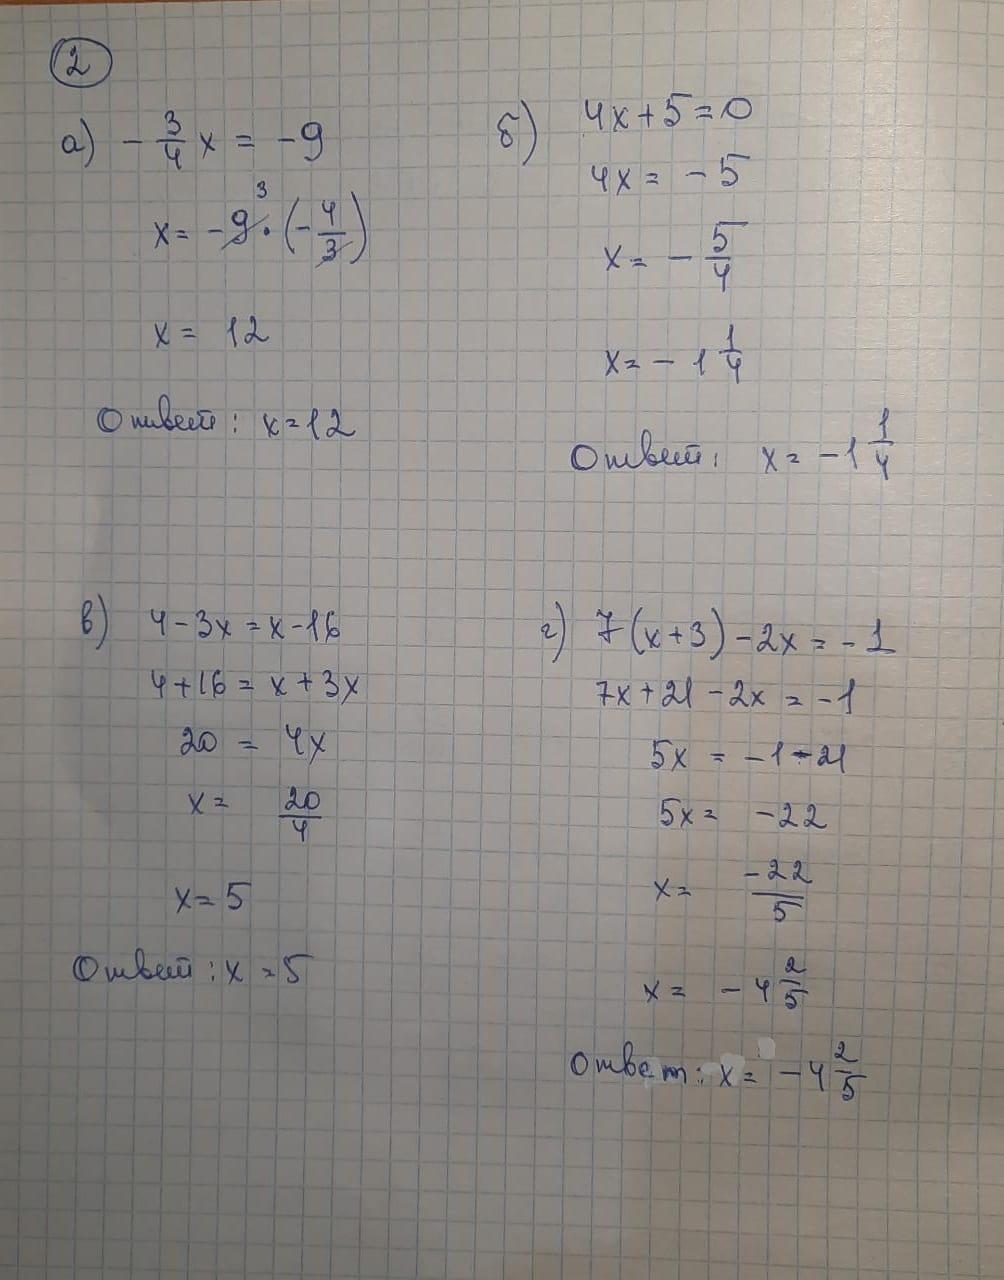 2
а) -3/4 x = -9
x = -9³ · (-4/3)
x = 12
Ответ: x=12
б) 4x+5=0
4x = -5
x = -5/4
x = -1 1/4
Ответ: x = -1 1/4
в) 4-3x=x-16
4+16 = x+3x
20 = 4x
x = 20/4
x = 5
Ответ: x = 5
г) 7(x+3)-2x = -1
7x+21-2x = -1
5x = -1-21
5x = -22
x = -22/5
x = -4 2/5
Ответ: x = -4 2/5